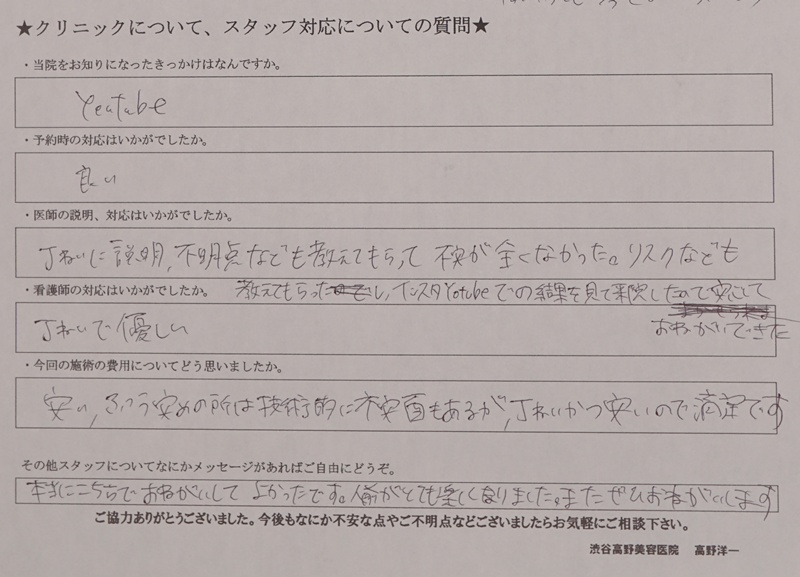 ★クリニックについて、スタッフ対応についての質問★
・当院をお知りになったきっかけはなんですか。
Youtube
・予約時の対応はいかがでしたか。
良い
・医師の説明、対応はいかがでしたか。
丁ねいに説明,不明点なども教えてもらって 不安が全くなかった。リスクなども
・看護師の対応はいかがでしたか。 教えてもらったし,インスタYotubeでの結果を見て来院したので安心して
おねがいできた
丁ねいで優しい
・今回の施術の費用についてどう思いましたか。
安い,ふつう安めの所は技術的に不安面もあるが,丁ねいかつ安いので満足です
その他スタッフについてなにかメッセージがあればご自由にどうぞ。
本当にこちらでおねがいして よかったです。人前がとても楽しくなりました。またぜひおねがいします
ご協力ありがとうございました。今後もなにか不安な点やご不明点などございましたらお気軽にご相談下さい。
渋谷高野美容医院 高野洋一